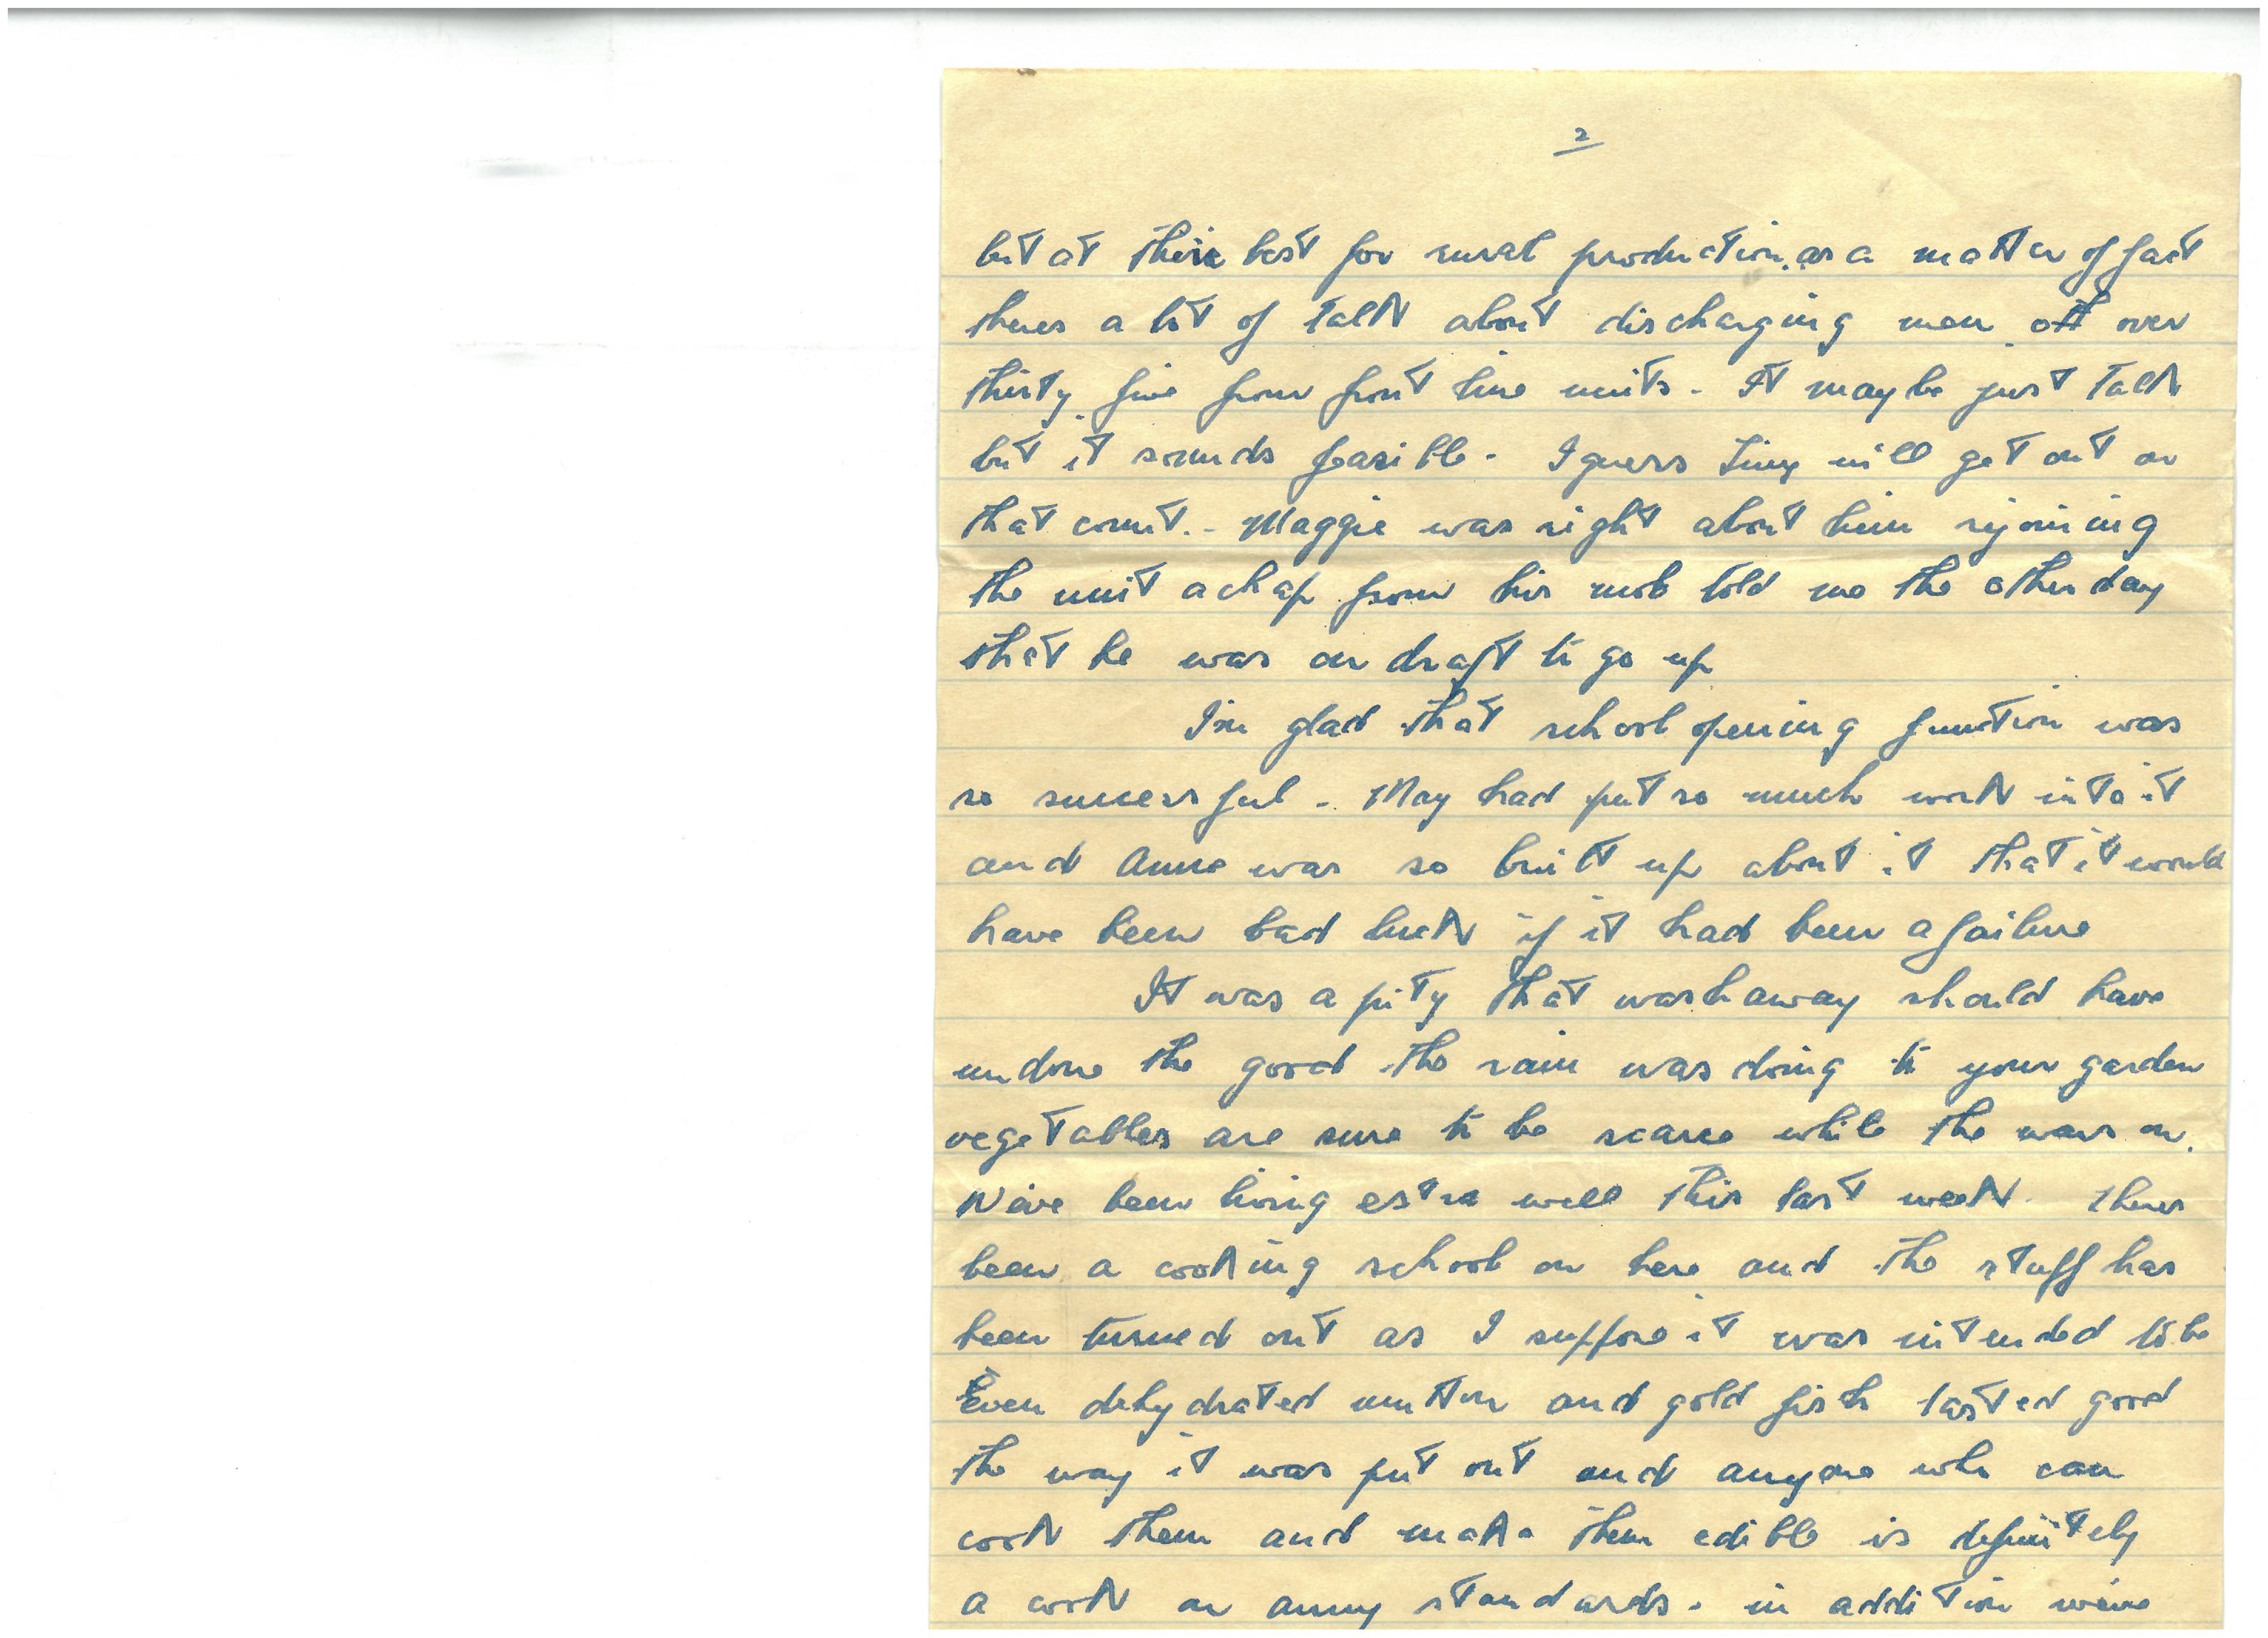 2
but at their best for rural production. as a matter of fact
theres a lot of talk about discharging men off over
thirty five from front line units - It may be just talk
but it sounds feasible - I guess will get out on
that count. - Maggie was right about him rejoining
the unit a chap from his mob told me the other day
that he was on draft to go up
I'm glad that school opening function was
so successful - May had put so much work into it
and Anne was so built up about it that it would
have been bad luck if it had been a failure
It was a pity that washaway should have
undone the good the rain was doing to your garden
vegetables are sure to be scarce while the wars on.
We've been living extra well this last week. theres
been a cooking school on here and the stuff has
been turned out as I suppose it was intended to be
Even dehydrated mutton and gold fish tasted good
the way it was put out and anyone who can
cook them and make them edible is definitely
a cook on army standards. in addition weve